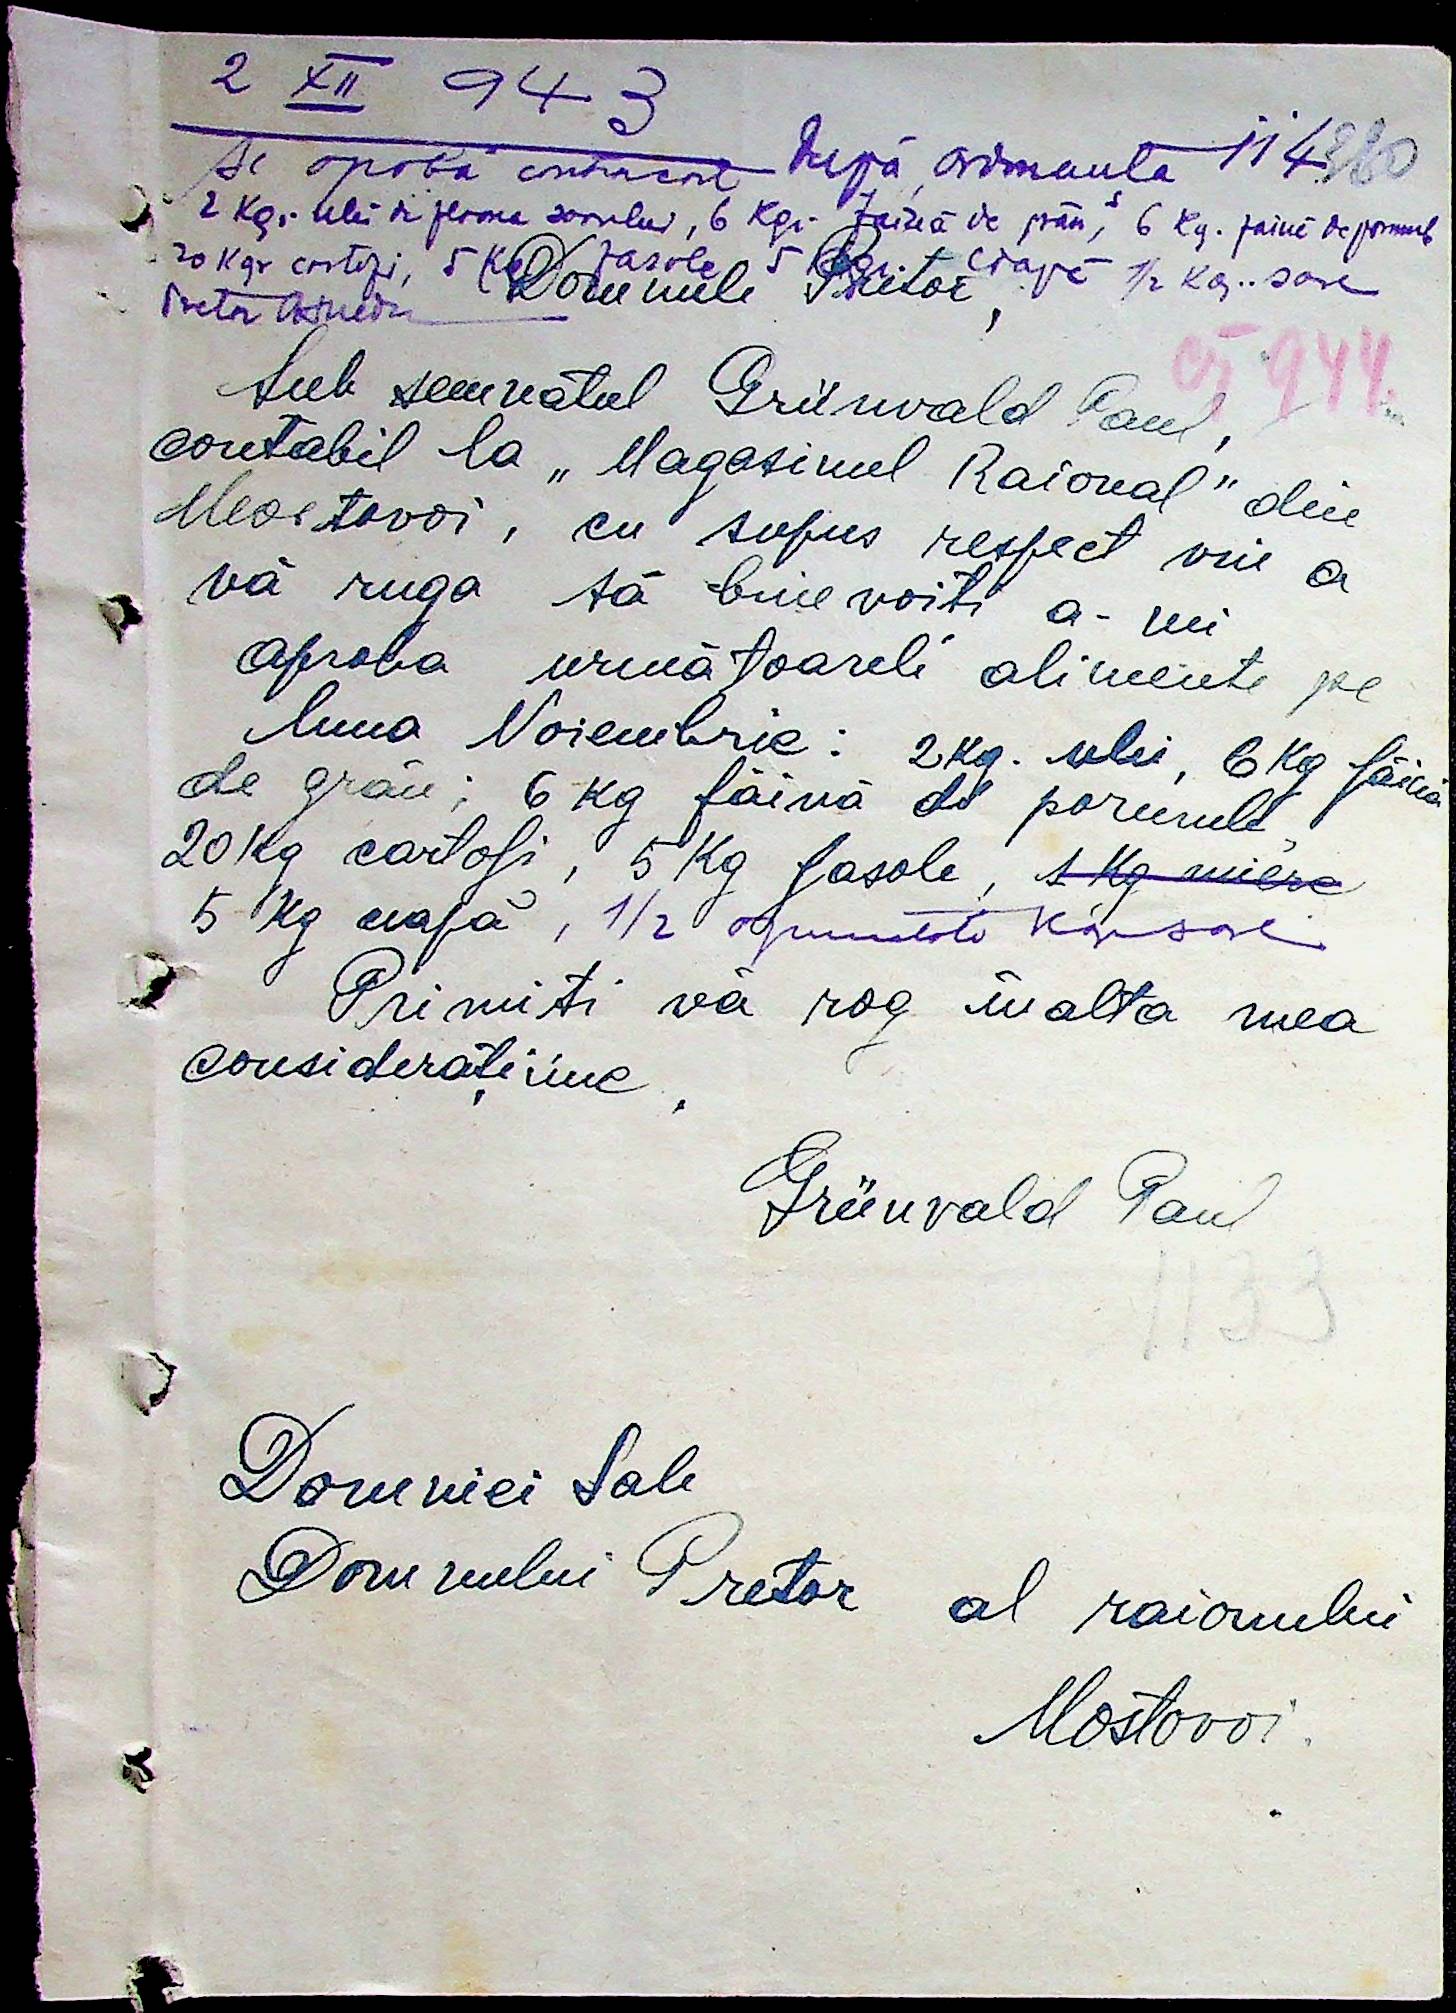 2 XII 943
Se aprobă contracost după ordonanta 114
380
2 Kgr. ulei de floarea soarelui, 6 Kgr. faină de grâu, 6 Kg. faină de porumb
20 Kgr cartofi, 5 Kgr fasole 5 Kgr ceapă 1/2 Kgr. sare
Pretor
Domnule Pretor,
944.
Sub semnătul Grünvald Paul,
contabil la „Magasinul Raional" din
Mostovoi, cu supus respect vin a
vă ruga să binevoiti a-mi
aproba următoarele alimente pe
luna Noiembrie: 2 Kg. ulei, 6 Kg făină
de grâu; 6 Kg făină de porumb,
20 Kg cartofi, 5 Kg fasole, 1 Kg miere
5 Kg ceapă, 1/2 Kgr sare
Primiti vă rog înalta mea
considerațiune.
Grünvald Paul
1133
Domniei Sale
Domnului Pretor al raionului
Mostovoi.